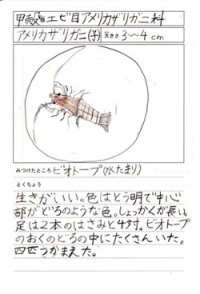 甲殻目エビ目アメリカザリガニ科
アメリカザリガニ(子) 大きさ 3〜4cm
みつけたところ ビオトープ(水たまり)
とくちょう
生きがいい。色はとう明で中心
部がどろのような色。しょっかくが長い。
足は2本のはさみと4対。ビオトープ
のおくのどろの中にたくさんいた。
四匹つかまえた。